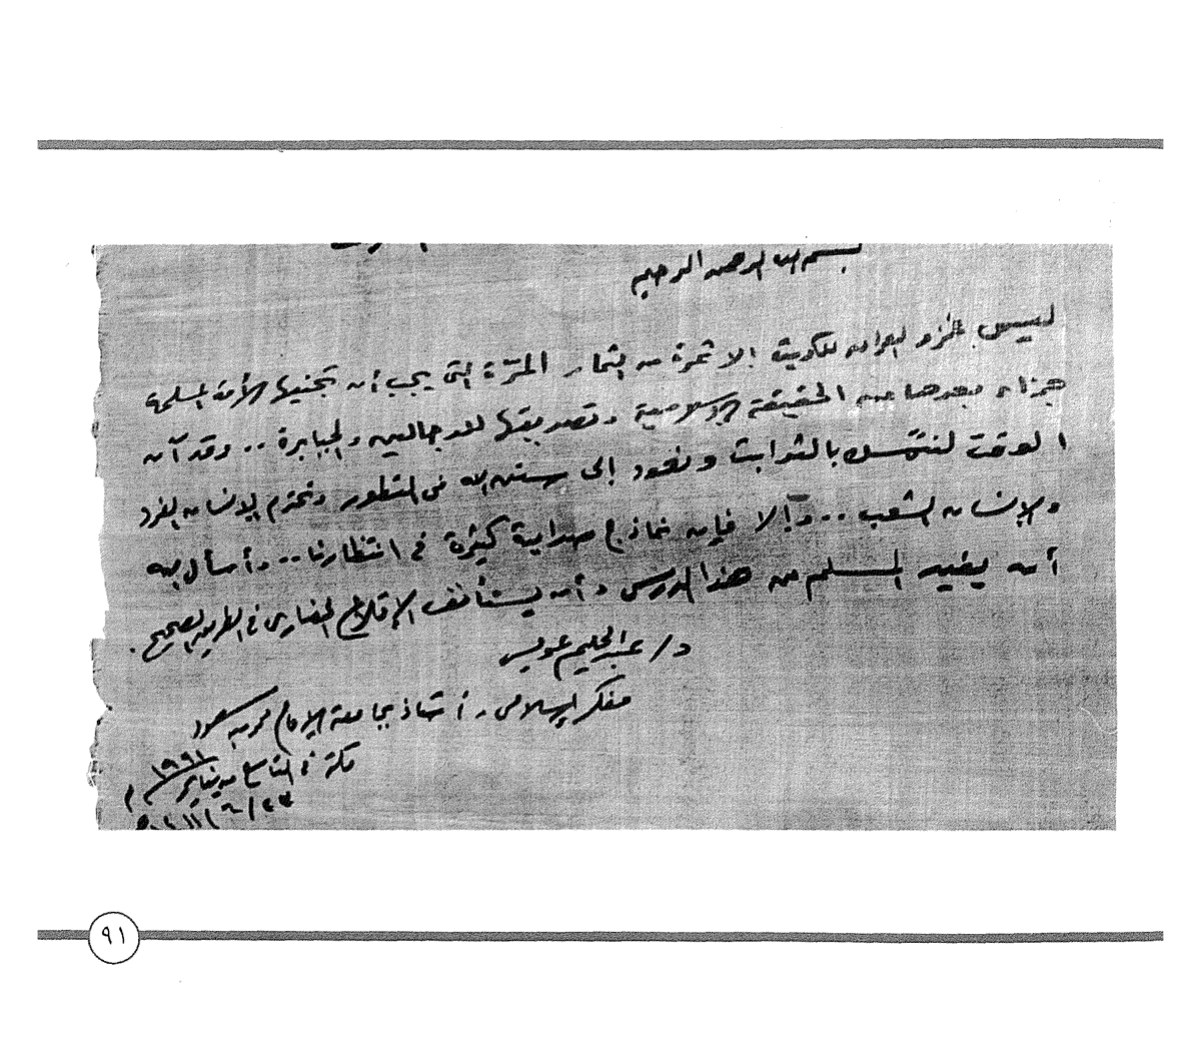 بسم الله الرحمن الرحيم
ليس غزو العراق للكويت إلا ثمرة من الثمار المرّة التي يجب أن تجنيها الأمة المسلمة
جزاء بعدها عن الحقيقة الإسلامية وتصديقها للدجالين والجبابرة .. وقد آن
الوقت لنتمسك بالثوابت ونعود إلى سنن الله في التطور ونحترم الإنسان الفرد
والإنسان الشعب .. وإلا فإن نماذج صدامية كثيرة في انتظارنا .. وأسأل الله
أن يفيد المسلم من هذا الدرس وأن يستأنف الإقلاع الحضاري في الطريق الصحيح .
د/ عبد الحليم عويس
مفكر إسلامي وأستاذ بجامعة الإمام محمد بن سعود
في التاسع من يناير ١٩٩١ م
٩١